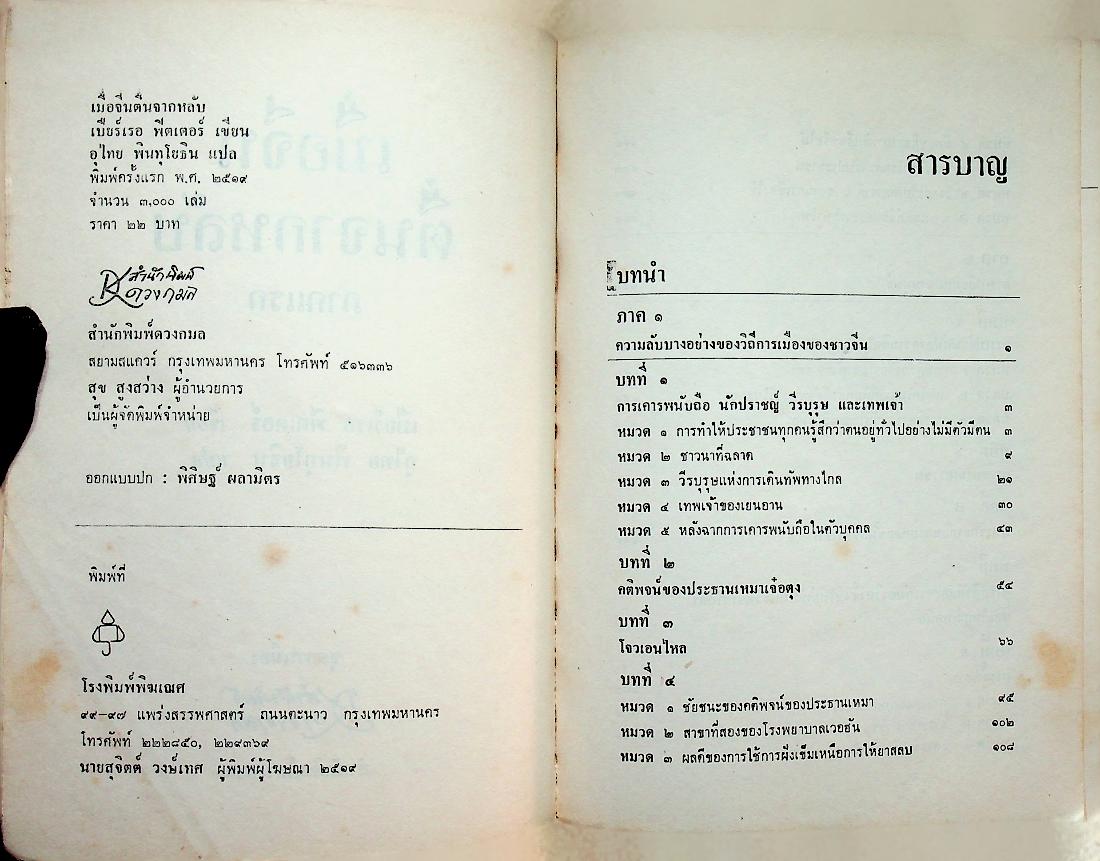 เมื่อจีนตื่นจากหลับ
เบียร์เรอ พีตเตอร์ เขียน
อุไทย พินทุโยธิน แปล
พิมพ์ครั้งแรก พ.ศ. ๒๕๑๙
จำนวน ๓,๐๐๐ เล่ม
ราคา ๒๒ บาท
สำนักพิมพ์
ดวงกมล
สำนักพิมพ์ดวงกมล
สยามสแควร์ กรุงเทพมหานคร โทรศัพท์ ๕๑๖๓๓๖
สุข สูงสว่าง ผู้อำนวยการ
เป็นผู้จัดพิมพ์จำหน่าย
ออกแบบปก : พิศิษฐ์ ผลามิตร
พิมพ์ที่
โรงพิมพ์พิฆเณศ
๙๙-๙๗ แพร่งสรรพศาสตร์ ถนนตะนาว กรุงเทพมหานคร
โทรศัพท์ ๒๒๒๘๕๐, ๒๒๙๓๖๙
นายสุจิตต์ วงษ์เทศ ผู้พิมพ์ผู้โฆษณา ๒๕๑๙
สารบาญ
บทนำ
ภาค ๑
ความลับบางอย่างของวิถีการเมืองของชาวจีน ๑
บทที่ ๑
การเคารพนับถือ นักปราชญ์ วีรบุรุษ และเทพเจ้า ๓
หมวด ๑ การทำให้ประชาชนทุกคนรู้สึกว่าตนอยู่ทั่วไปอย่างไม่มีตัวมีตน ๓
หมวด ๒ ชาวนาที่ฉลาด ๙
หมวด ๓ วีรบุรุษแห่งการเดินทัพทางไกล ๒๑
หมวด ๔ เทพเจ้าของเยนอาน ๓๐
หมวด ๕ หลังฉากการเคารพนับถือในตัวบุคคล ๔๓
บทที่ ๒
คติพจน์ของประธานเหมาเจ๋อตุง ๕๔
บทที่ ๓
โจวเอนไหล ๖๖
บทที่ ๔
หมวด ๑ ชัยชนะของคติพจน์ของประธานเหมา ๙๕
หมวด ๒ สาขาที่สองของโรงพยาบาลเวอฮัน ๑๐๒
หมวด ๓ ผลดีของการใช้การฝังเข็มเหนือการให้ยาสลบ ๑๐๘